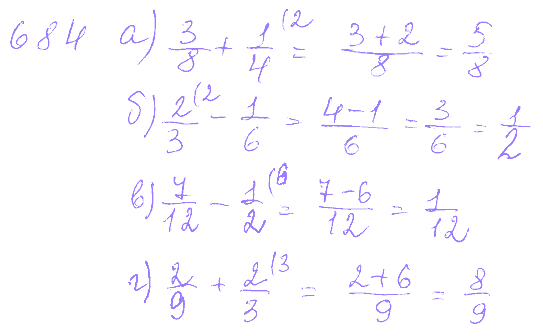 684 а) 3/8 + 1/4 (2 = 3+2/8 = 5/8
б) 2/3 (2 - 1/6 = 4-1/6 = 3/6 = 1/2
в) 7/12 - 1/2 (6 = 7-6/12 = 1/12
г) 2/9 + 2/3 (3 = 2+6/9 = 8/9